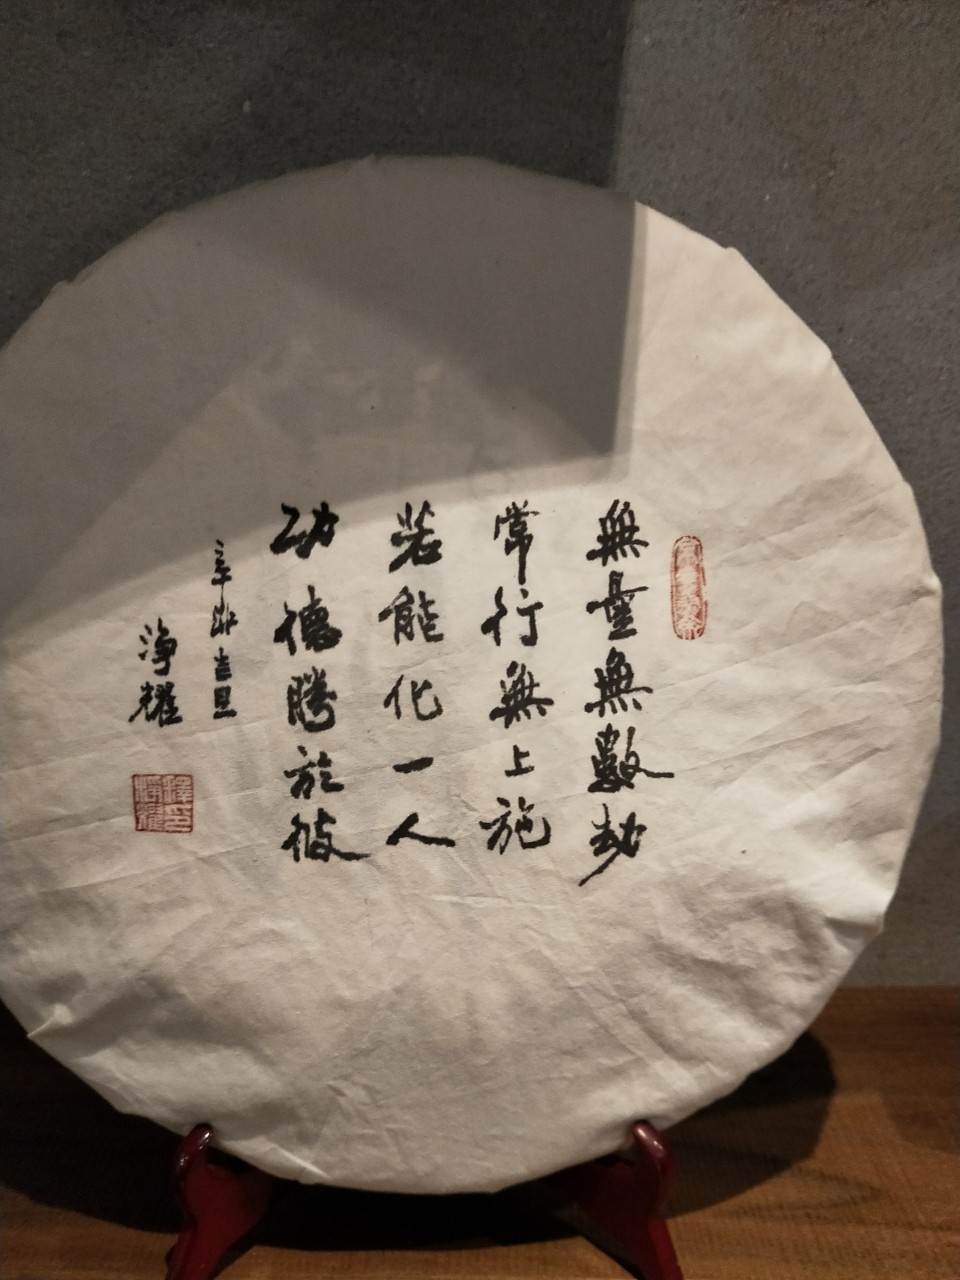 無量無數劫
常行無上施
若能化一人
功德勝於彼
辛卯吉旦
淨耀
釋淨耀印